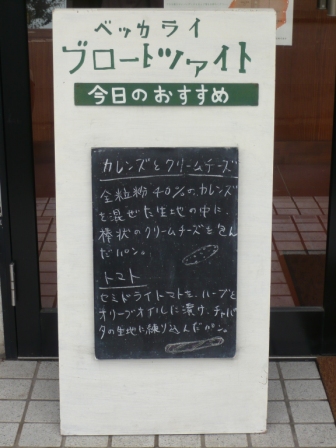 ベッカライ
ブロートツァイト
今日のおすすめ
カレンズとクリームチーズ
全粒粉40%の、カレンズ
を混ぜた生地の中に、
棒状のクリームチーズを包ん
だパン。
トマト
セミドライトマトを、ハーブと
オリーブオイルに漬け、チャバ
タの生地に練り込んだパン。